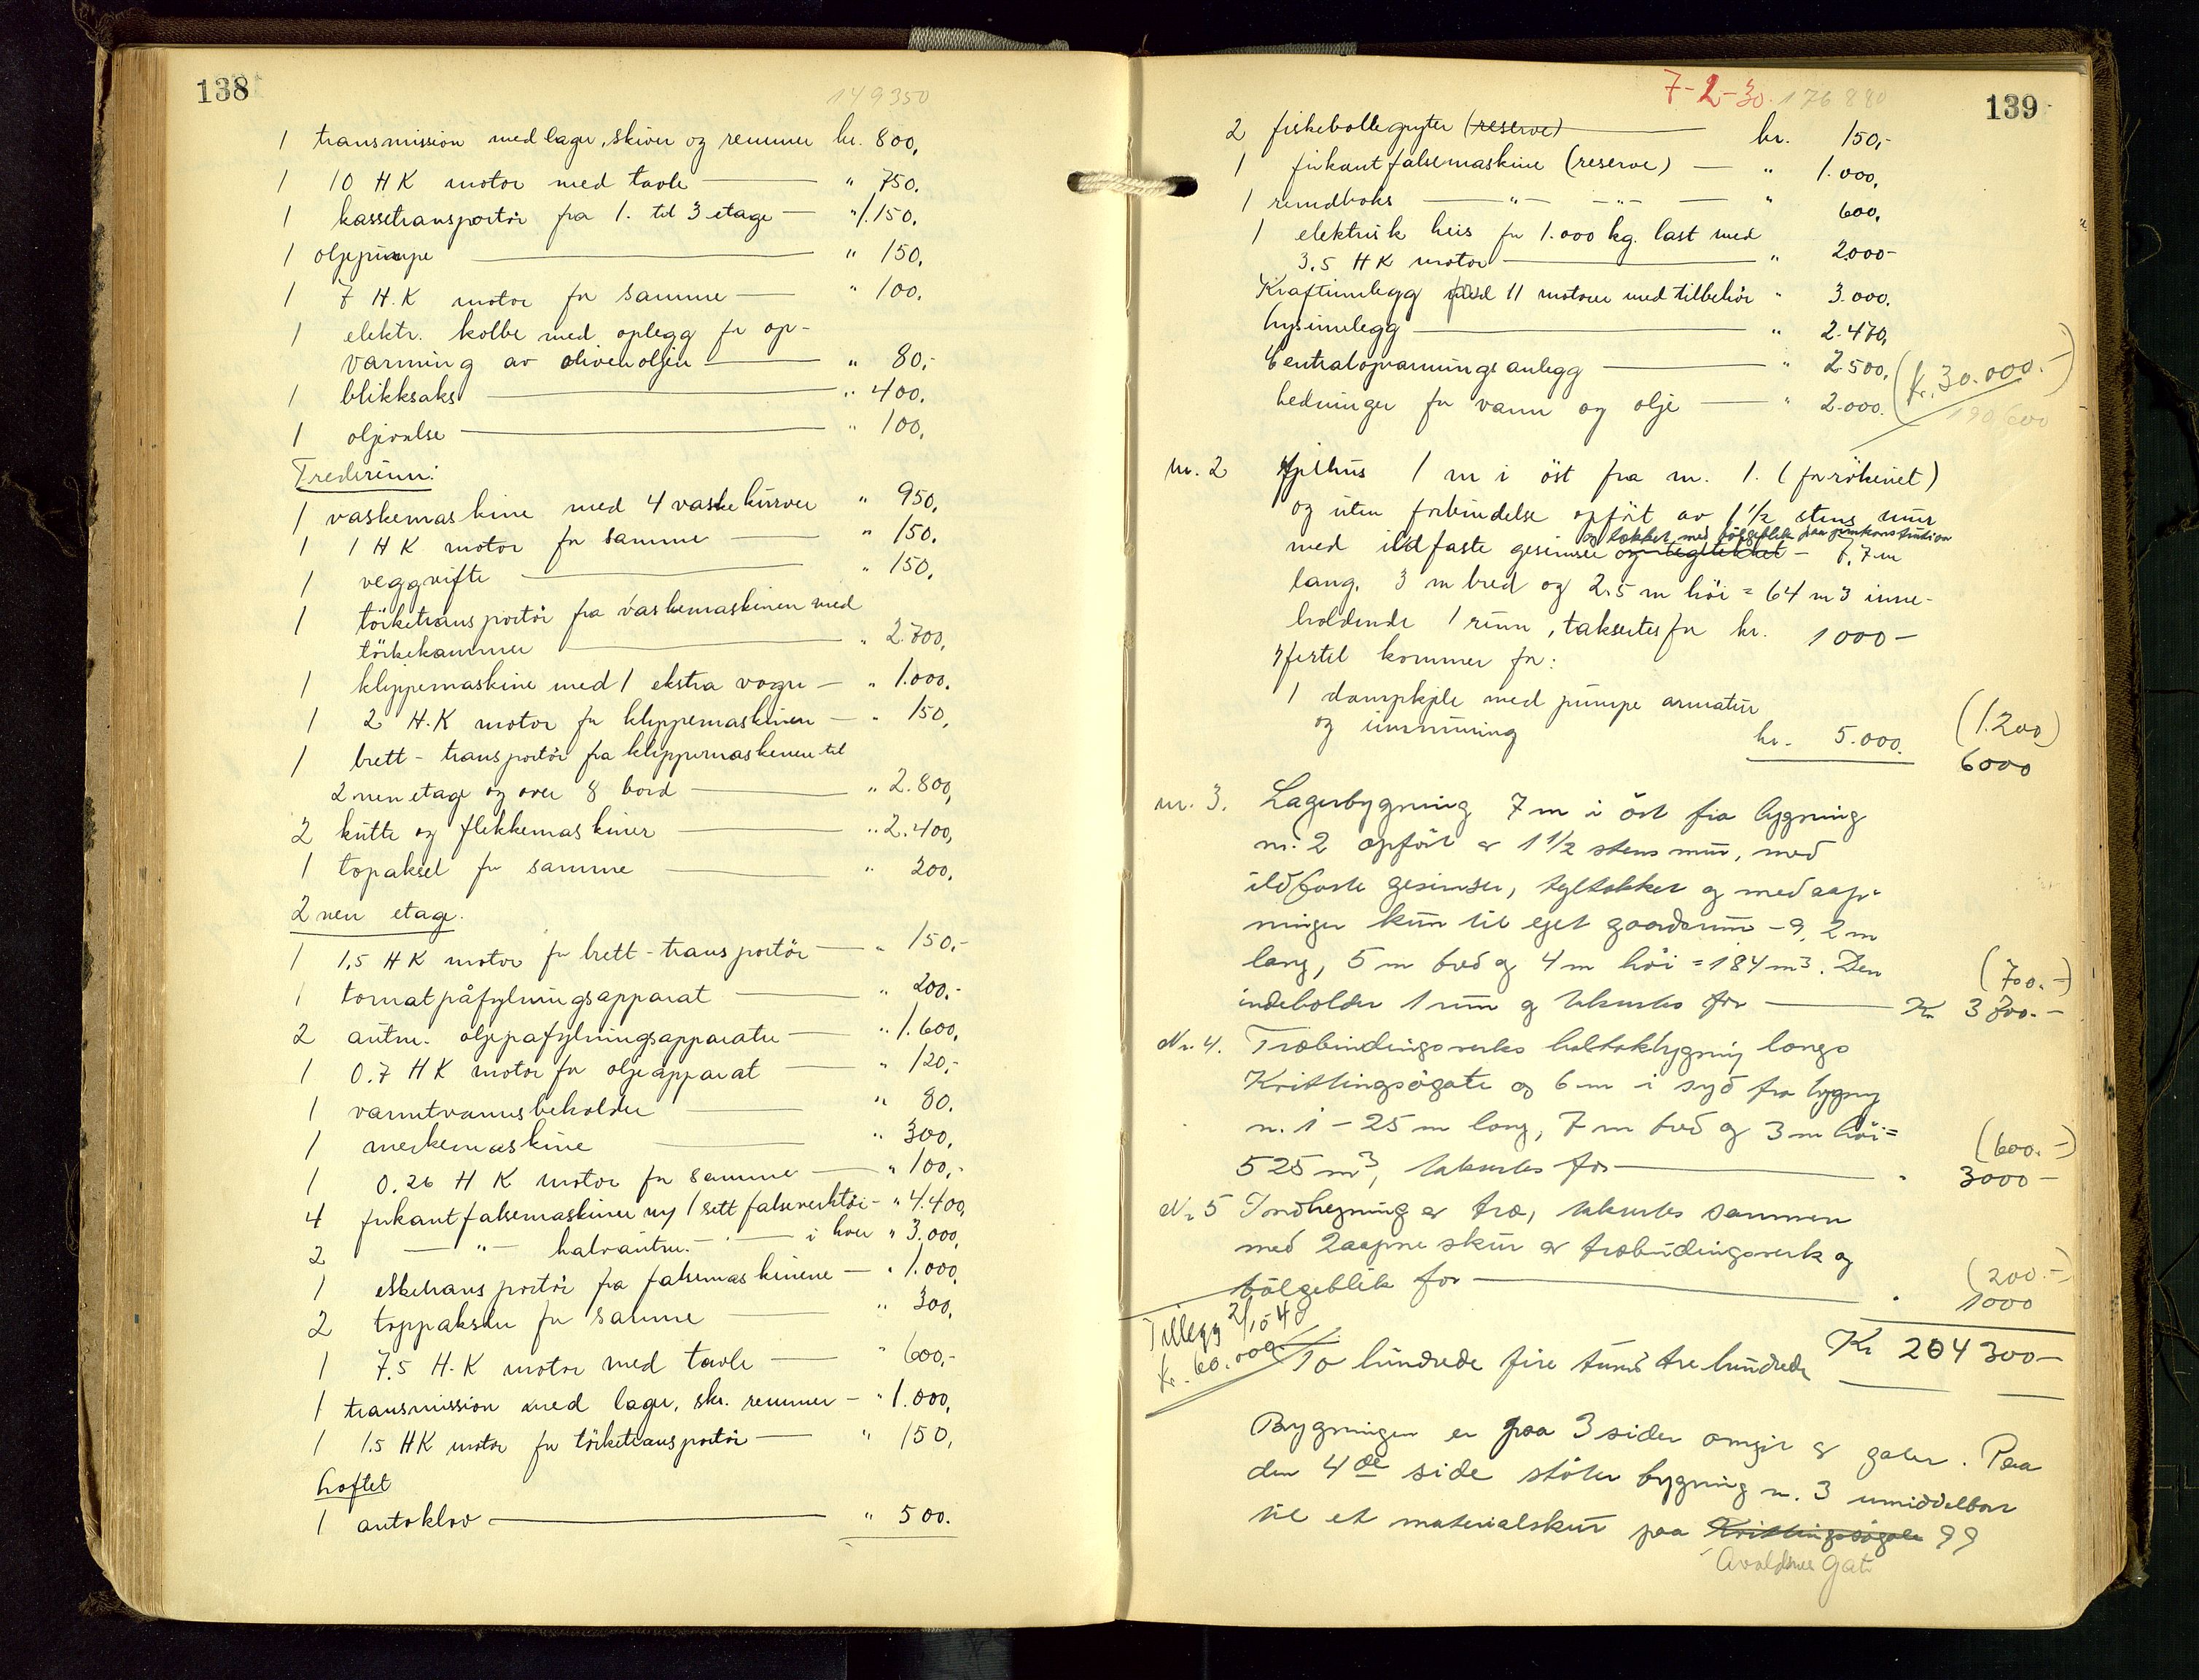 138
149350
1 transmission med lager, skiver og remmer kr. 800,
1 10 HK motor med tavle — " 750.
1 kassetransportör fra 1. til 3 etage — " 1.150,
1 oljepumpe — " 150,
1 7 H.K motor for samme — " 100,
1 elektr. kolbe med oplegg for op-
varming av olivenoljen — " 80,-
1 blikksaks — " 400.
1 oljevalse — " 100,
Trederum:
1 vaskemaskine med 4 vaskekurver " 950,
1 1 HK motor for samme — " 150,
1 veggvifte — " 150,
1 törketransportör fra vaskemaskinen med
törkekammer — " 2.700,
1 klippemaskine med 1 ekstra vogn — " 1.000,
1 2 H.K motor for klippemaskinen — " 150,
1 brett-transportör fra klippemaskinen til
2nen etage og over 8 bord — " 2.800,
2 kutte og flekkemaskiner — " 2.400,
1 topaksel for samme — " 200,
2nen etage.
1 1,5 HK motor for brett-transportör — " 150,-
1 tomatpåfylningsapparat — " 200,-
2 autm. oljepafylningsapparater — " 1.600,
1 0.7 HK motor for oljeapparat — " 120,-
1 varmtvannsbeholder — " 80.
1 merkemaskine — " 300,
1 0.26 HK motor for samme — " 100,-
4 firkantfalsemaskiner m/ 1 sett falseverktöi — " 4.400,
2 — " — halvautm. — " — i hver " 3.000,
1 esketransportör fra falsemaskinene — " 1.000,
2 toppaksler for samme — " 300,
1 7.5 H.K motor med tavle — " 600,-
1 transmission med lager, skr. remmer — " 1.000,
1 1.5 HK motor for törketransportör — " 150,
Loftet
1 autoklav — " 500.
7-2-30. 176880
139
2 fiskebollegryter (reserve) — kr. 150,-
1 firkantfalsemaskine (reserve) — " 1.000,
1 rundboks — " — — " — — " 600,
1 elektrisk heis for 1.000 kg. last med
3.5 HK motor — " 2000-
Kraftinnlegg med 11 motorer med tilbehör " 3.000.
Lysinnlegg — " 2.470,
Centralopvarmingsanlegg — " 2.500, (kr. 30.000.-)
Ledninger for vann og olje — " 2.000. 190600
nr. 2 Kjelhus 1 m i öst fra nr. 1. (forökenet)
og uten forbindelse opfört av 1 1/2 stens mur
og tækket med bölgeblik paa jernkonstruktion
med ildfaste gesimser og tegltekket - 8,7 m
lang, 3 m bred og 2.5 m höi = 64 m3 inne-
holdende 1 rum, takseres for kr. 1000 -
Hertil kommer for:
1 dampkjele med pumpe armatur (1.200)
og inmuring kr. 5.000. 6000
nr. 3. Lagerbygning 7 m i öst fra bygning
nr. 2 opfört av 1 1/2 stens mur, med
ildfaste gesimser, tegltækket og med aap-
ninger kun til eget gaardsrum - 9,2 m
lang, 5 m bred og 4 m höi = 184 m3. Den (700.-)
indeholder 1 rum og takseres for — Kr 3700.-
Nr. 4. Træbindingsverks halvtakbygning langs
Kvitsingsögate og 6 m i syd fra bygning
nr. 1 - 25 m lang, 7 m bred og 3 m höi = (600.-)
525 m3, takseres for — " 3000 -
Nr 5 Indhegning av træ, takseres sammen
med 2 aapne skur av træbindingsverk og (200.-)
bölgeblik for — " 1000
Tillegg 2/10 48
kr. 60.000.
To hundrede fire tusind tre hundrede Kr 204300-
Bygningen er paa 3 sider omgit av gater. Paa
den 4de side stöter bygning nr. 3 umiddelbar
til et materialskur paa Kvitsingsögate 99
Avaldsnes Gate